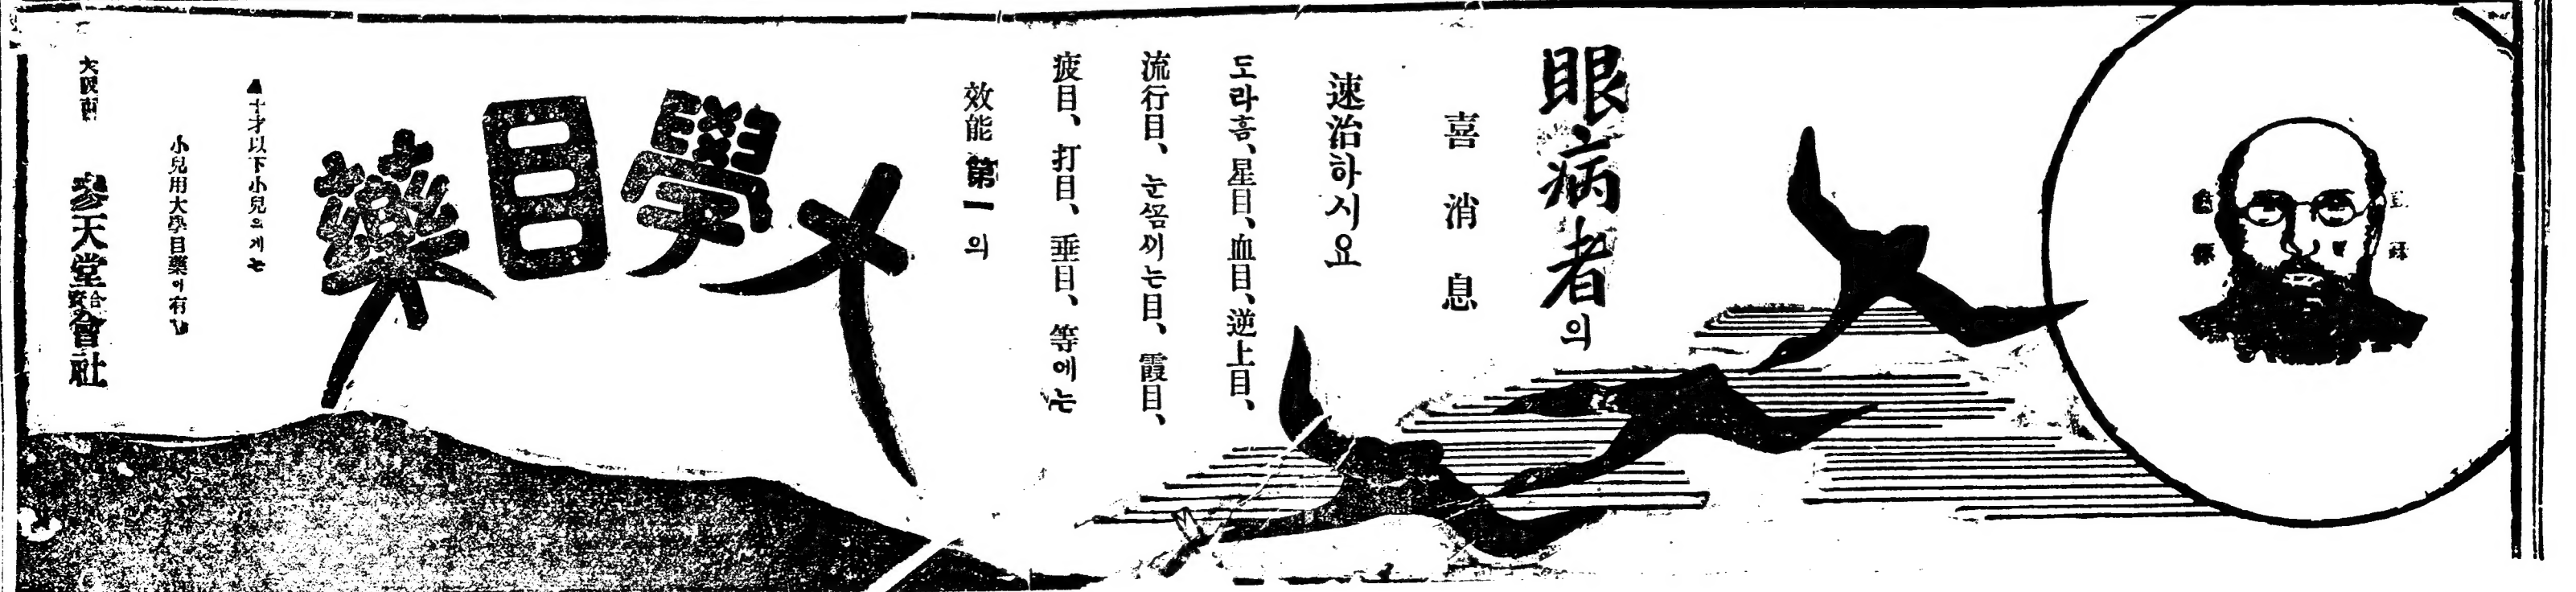 眼病者의
喜消息
速治하시요
도라홈、星目、血目、逆上目、
流行目、霞目、
疲目、打目、垂目、等에는
效能第一의
大學目藥
▲十才以下小兒의게는
小兒用大學目藥이有
大阪市 參天堂合資會社